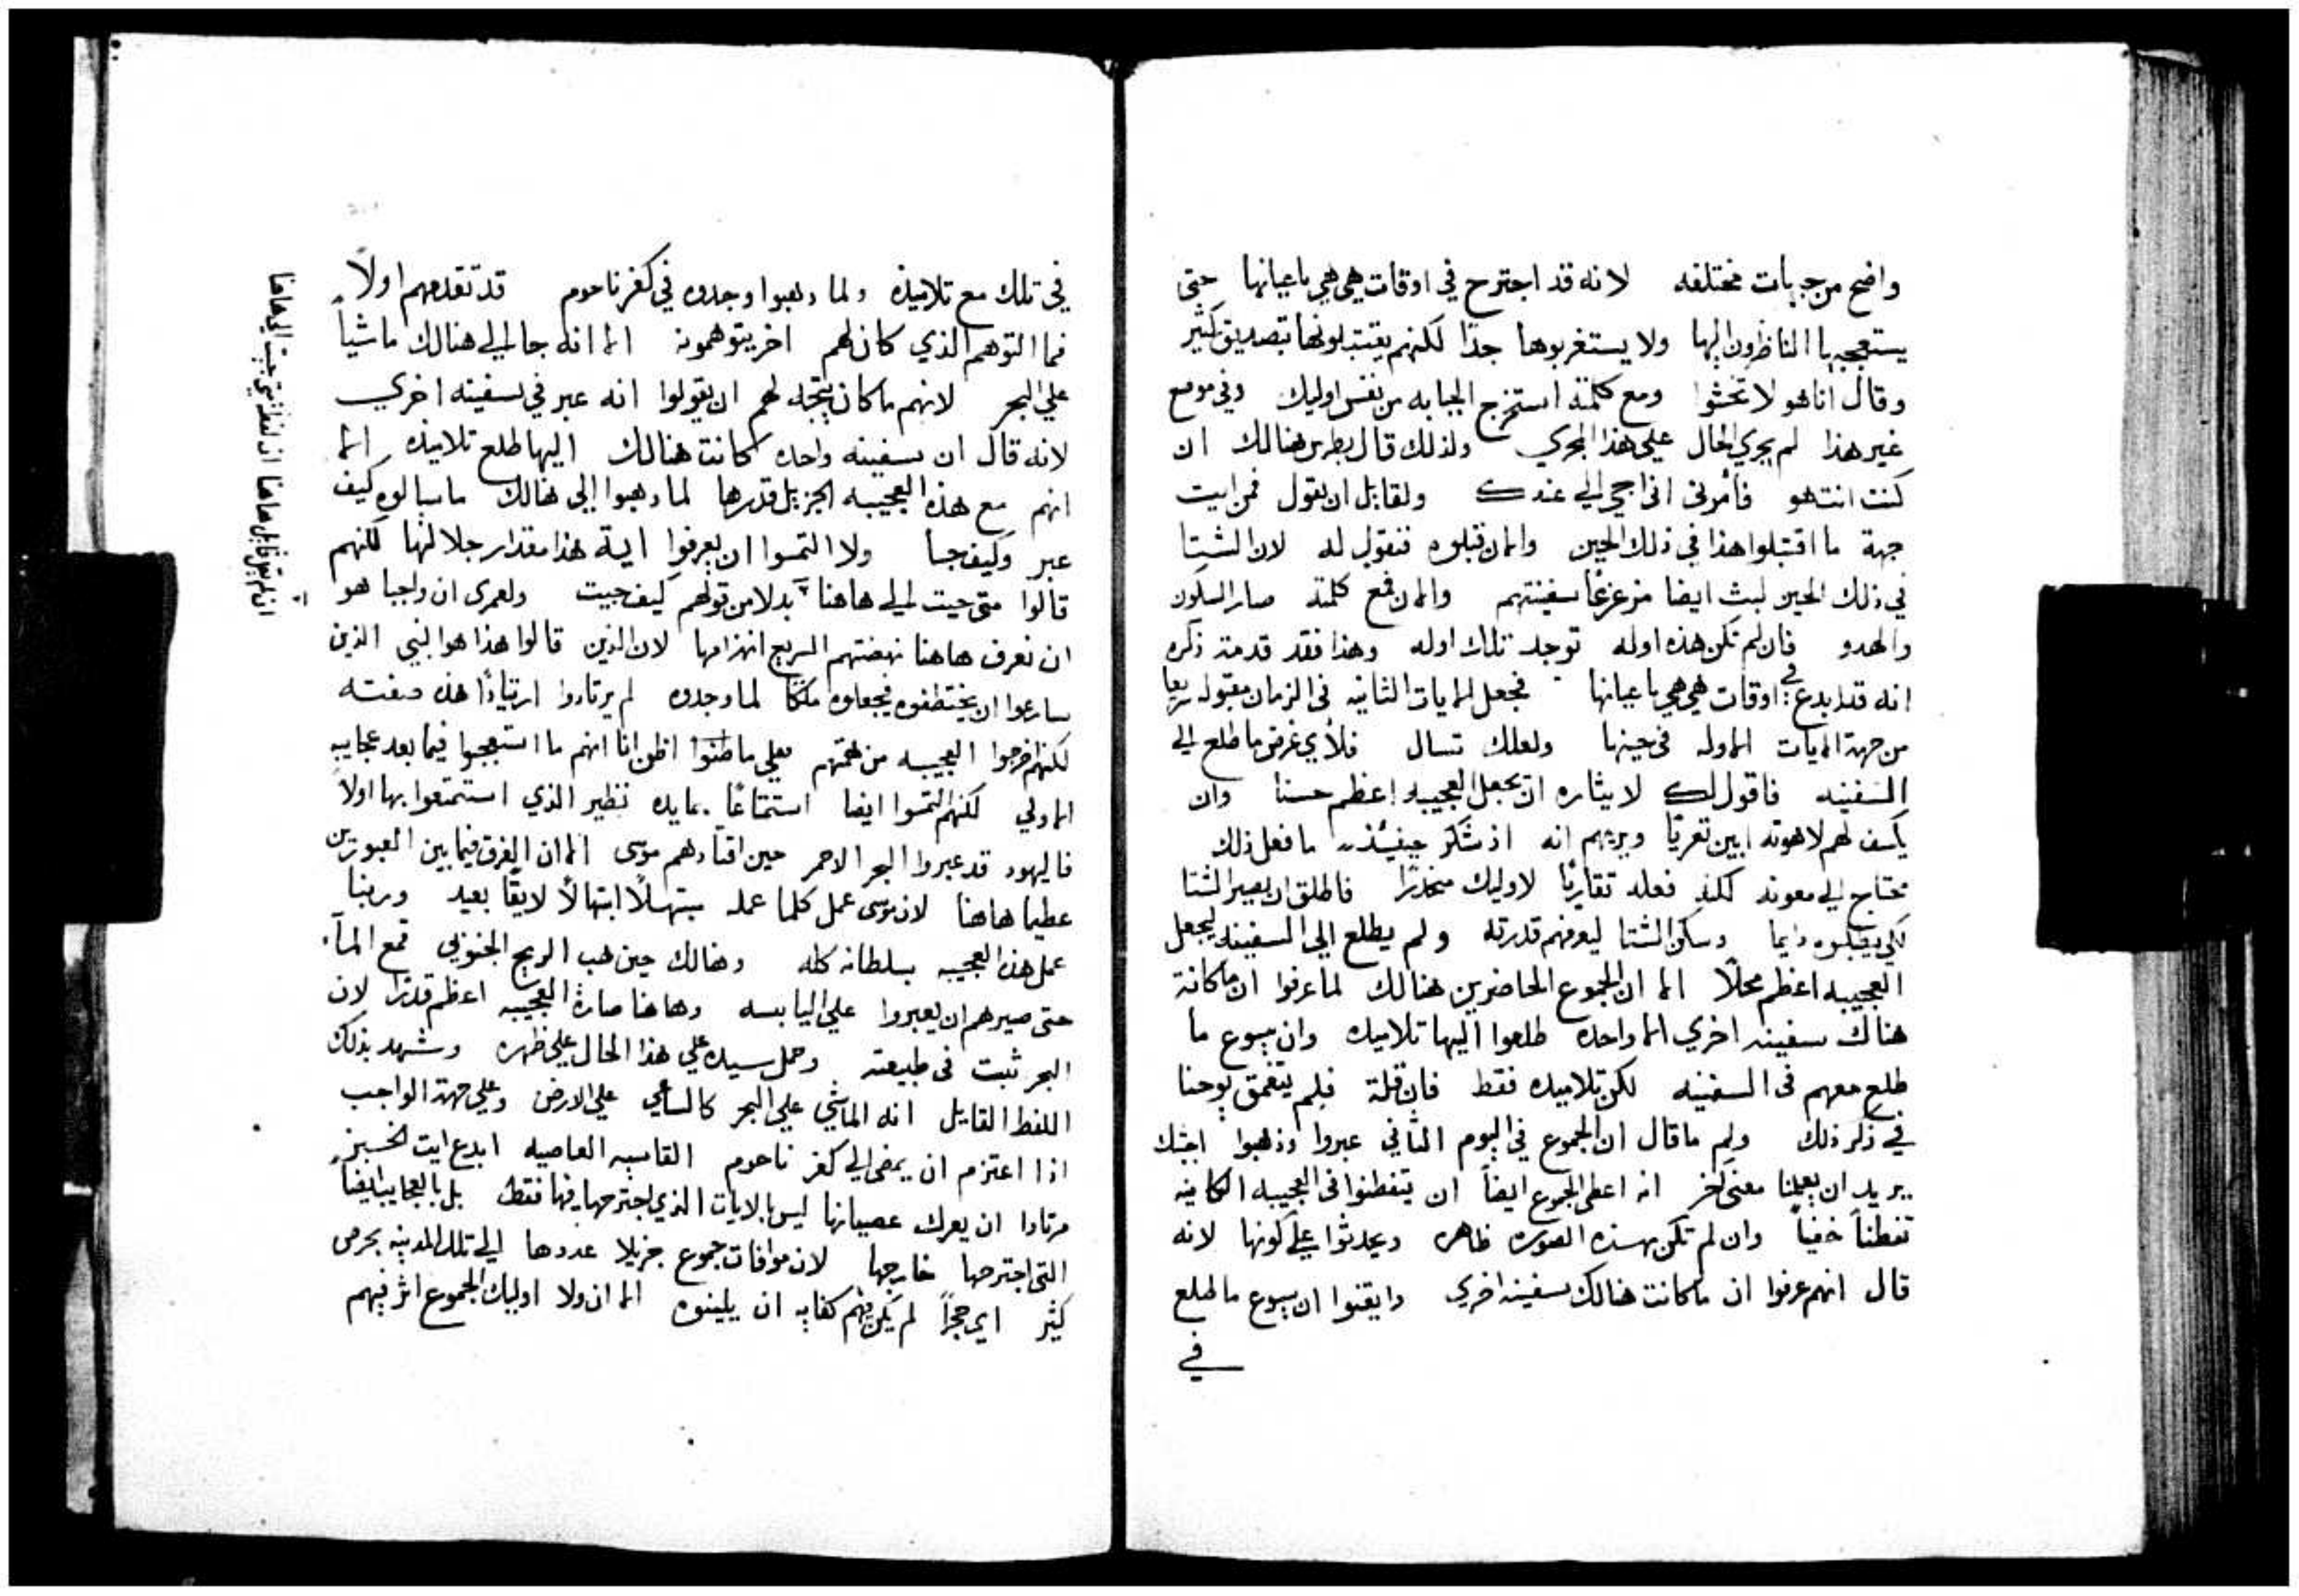 واضح من جهات مختلفه لانه قد اجترح في اوقات هي هي باعيانها حتى
يستعجبها الناظرون اليها ولا يستغربوها جدًا لكنهم يقتبلونها بتصديق كثير
وقال انا هو لا تخشوا ومع كلمته استخرج الجبانه من نفس اوليك وفي موضع
غير هذا لم يجري الحال على هذا المجري ولذلك قال بطرس هنالك ان
كنت انت هو فأمرني اني اجي الي عندك ولقايل ان يقول فمن ايت
جهة ما اقتبلوا هذا في ذلك الحين والان قبلوه فنقول له لان الشتا
في ذلك الحين لبث ايضا مزعزعًا سفينتهم والان فمع كلمته صار السكون
والهدو فان لم تكن هذه اوله توجد تلك اوله وهذا فقد قدمت ذكره
انه قد ابدع في اوقات هي هي باعيانها فجعل الايات الثانيه في الزمان مقبوله سريعا
من جهة الايات الاوله في حينها ولعلك تسال فلأي غرض ما طلع الي
السفينه فاقول لك لايثاره ان يجعل العجيبه اعظم حسنا وان
يكسف لهم لاهوته ابين تعريًا ويريهم انه اذ شكر حينئذ ما فعل ذلك
محتاج الي معونه لكنه فعله تقاربًا لاوليك منحدرًا فاطلق ان يصير الشتا
لكي يطلبوه دايما وسكن الشتا ليعرفهم قدرته ولم يطلع الي السفينه ليجعل
العجيبه اعظم محلًا الا ان الجموع الحاضرين هنالك لما عرفوا ان ما كانة
هناك سفينه اخري الا واحده طلعوا اليها تلاميده وان يسوع ما
طلع معهم في السفينه لكن تلاميده فقط فان قلة فلم يتغمق يوحنا
في ذكر ذلك ولم ما قال ان الجموع في اليوم الثاني عبروا وذهبوا اجبتك
يريد ان يعلمنا معنى اخر انه اعطى الجموع ايضاً ان يتفطنوا في العجيبه الكاينه
تفطناً خفياً وان لم تكن بهذه الصوره ظاهره ويحدثوا علي كونها لانه
قال انهم عرفوا ان ما كانت هنالك سفينه اخري وايقنوا ان يسوع ما طلع
في
في تلك مع تلاميذه ولما دهبوا وجدوه في كفرناحوم قد تقدمهم اولاً
فما التوهم الذي كان لهم اخر يتوهمونه الا انه جا الي هنالك ماشياً
علي البحر لانهم ما كان يتجه لهم ان يقولوا انه عبر في سفينه اخري
لانه قال ان سفينه واحده كانت هنالك اليها طلع تلاميذه الا
انهم مع هذه العجيبه الجزيل قدرها لما دهبوا إلى هنالك ما سالوه كيف
عبر وكيف جا ولا التمسوا ان يعرفوا اية هذا مقدار جلالتها لكنهم
قالوا متى جيت الي هاهنا بدلا من قولهم كيف جيت ولعمري ان واجبا هو
ان نعرف هاهنا نهضتهم السريع انهزامها لان الذين قالوا هذا هو النبي الذين
سارعوا ان يختطفوه فيجعلوه ملكًا لما وجدوه لم يرتادوا ارتيادًا هذه صفته
لكنهم اخرجوا العجيبه من همتهم فعلي ما ظنوا اظن انا انهم ما استعجبوا فيما بعد عجايبه
الاولي لكنهم التمسوا ايضا استمتاعًا بمايده نظير الذي استمتعوا بها اولاً
فاليهود قد عبروا البحر الاحمر حين اقتادهم موسى الا ان الفرق فيما بين العبورين
عظيما هاهنا لان موسى عمل كلما عمله مبتهلاً ابتهالاً لايقًا بعبد وربنا
عمل هذه العجيبه بسلطانه كله وهنالك حين هب الريح الجنوبي قمع المآ
حتى صيرهم ان يعبروا على اليابسه وهاهنا صارة العجيبه اعظم قدرًا لان
البحر ثبت في طبيعته وحمل سيده علي هذا الحال علي ظهره وشهد بذلك
اللفظ القايل انه الماشي علي البحر كالساعي علي الارض وعلي جهة الواجب
اذا اعتزم ان يمضي الي كفر ناحوم القاسيه العاصيه ابدع ايت الخبز
مرتادا ان يعرك عصيانها ليس بالايات الذي اجترحها فيها فقط بل بالعجايب ايضا
التي اجترحها خارجها لان موافات جموع جزيلا عددها الي تلك المدينه بحرص
كثير اي حجراً لم يكن فيهم كفايه ان يلينوه الا ان ولا اوليك الجموع اثر فيهم